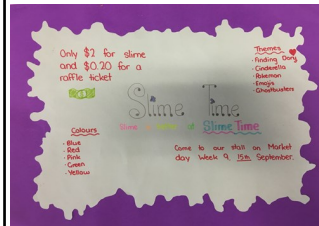 Only $2 for slime
and $0.20 for a
raffle ticket
Themes
· Finding Dory
· Cinderella
· Pokemon
· Emojis
· Ghostbusters
Slime Time
Slime Time
Colours
· Blue
· Red
· Pink
· Green
· Yellow
Come to our stall on Market
day Week 9, 15th September.